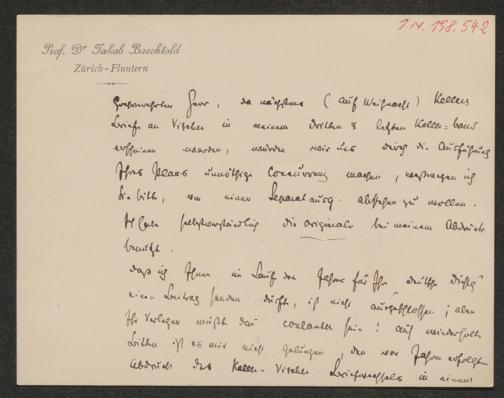 I.N. 198.542
Prof. Dr Jakob Baechtold
Zürich-Fluntern
Hochverehrter Herr, da nächstens (auf Weihnacht) Kellers
Briefe an Vischer in meinem dritten & letzten Keller-band
erscheinen werden, würden wir uns durch die Ausführung
Ihres Planes unnöthige Concurrenz machen, weswegen ich
Sie bitte, von einer Separatausg. absehen zu wollen.
Ich habe selbstverständlich die Originale bei meinem Abdruck
benützt.
Dass ich Ihnen im Lauf des Jahres für Ihr "deutsche Dichtg"
einen Beitrag senden dürfte, ist nicht ausgeschlossen; aber
Ihr Verleger müsste dann coulanter sein! Auf wiederholte
Bitten ist es mir nicht gelungen den vor Jahren erfolgten
Abdruck des Keller-Vischer Briefwechsels in einem